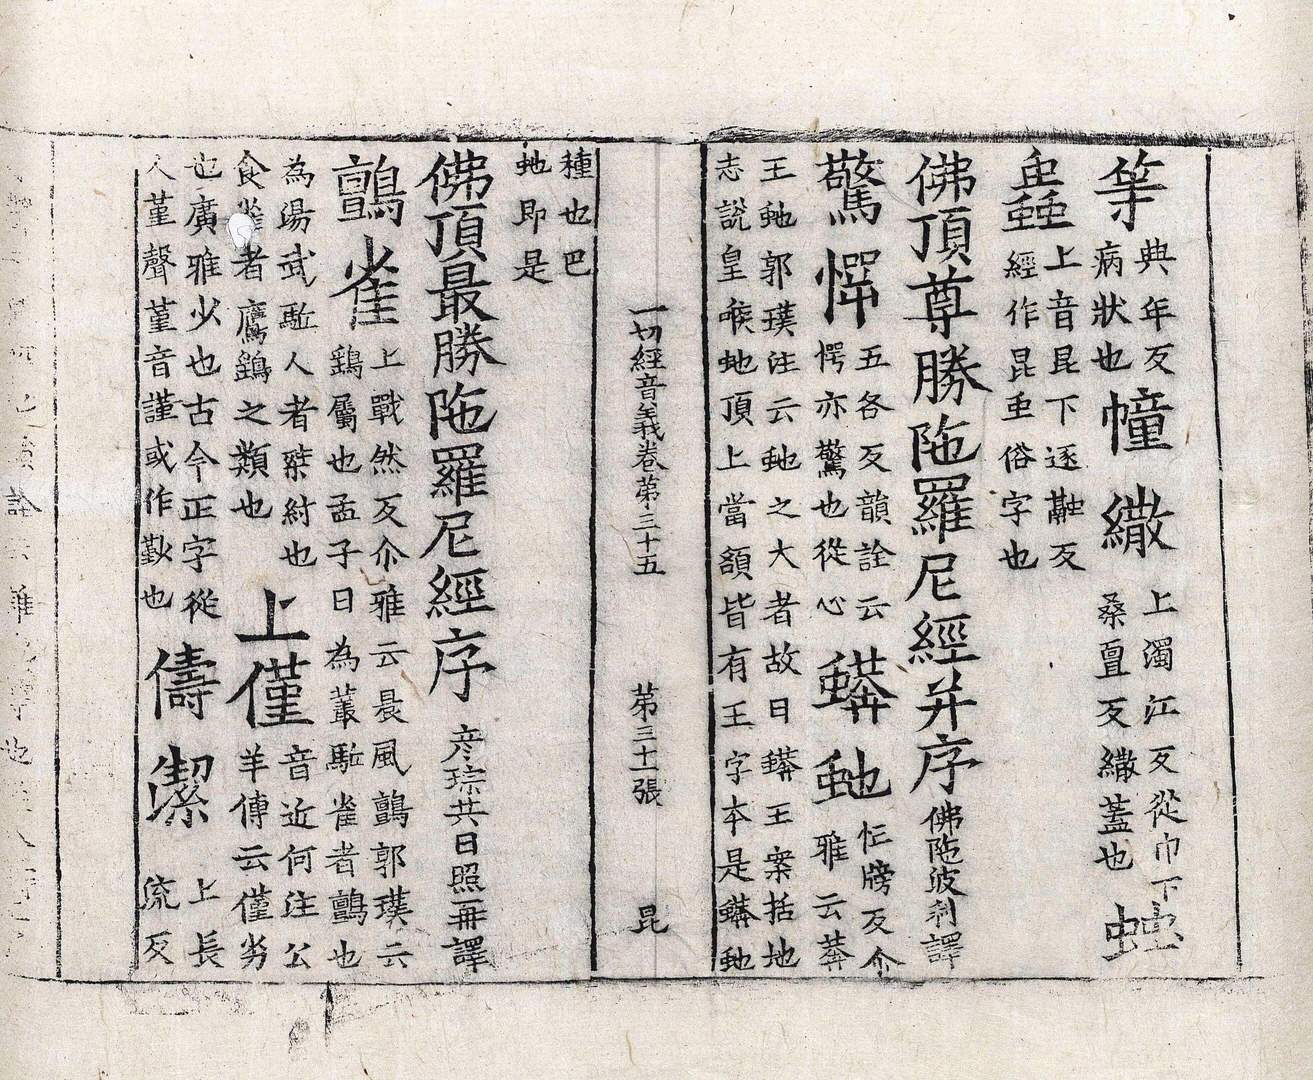 典年反
病狀也
幢繖
上濁江反從巾下
桑亶反繖蓋也
䖵
蟲
上音昆下逐融反
經作昆虫俗字也
佛頂尊勝陁羅尼經并序 佛陁波利譯
驚愕
五各反韻詮云
愕亦驚也從心
蟒虵
忙牓反尒
雅云蟒
王虵郭璞注云虵之大者故曰蟒王案括地
志說皇喉虵頂上當額皆有王字本是蟒虵
一切經音義卷第三十五 第三十一張 昆
種也巴
虵即是
佛頂最勝陁羅尼經序 彥琮共日照再譯
鸇雀
上戰然反尒雅云晨風鸇郭璞云
鷂屬也孟子曰為叢駈雀者鸇也
為湯武駈人者桀紂也
食雀者鷹鷂之類也
上僅
音近何注公
羊傳云僅劣
也廣雅少也古今正字從
人堇聲堇音謹或作勤也
儔潔
上長
流反